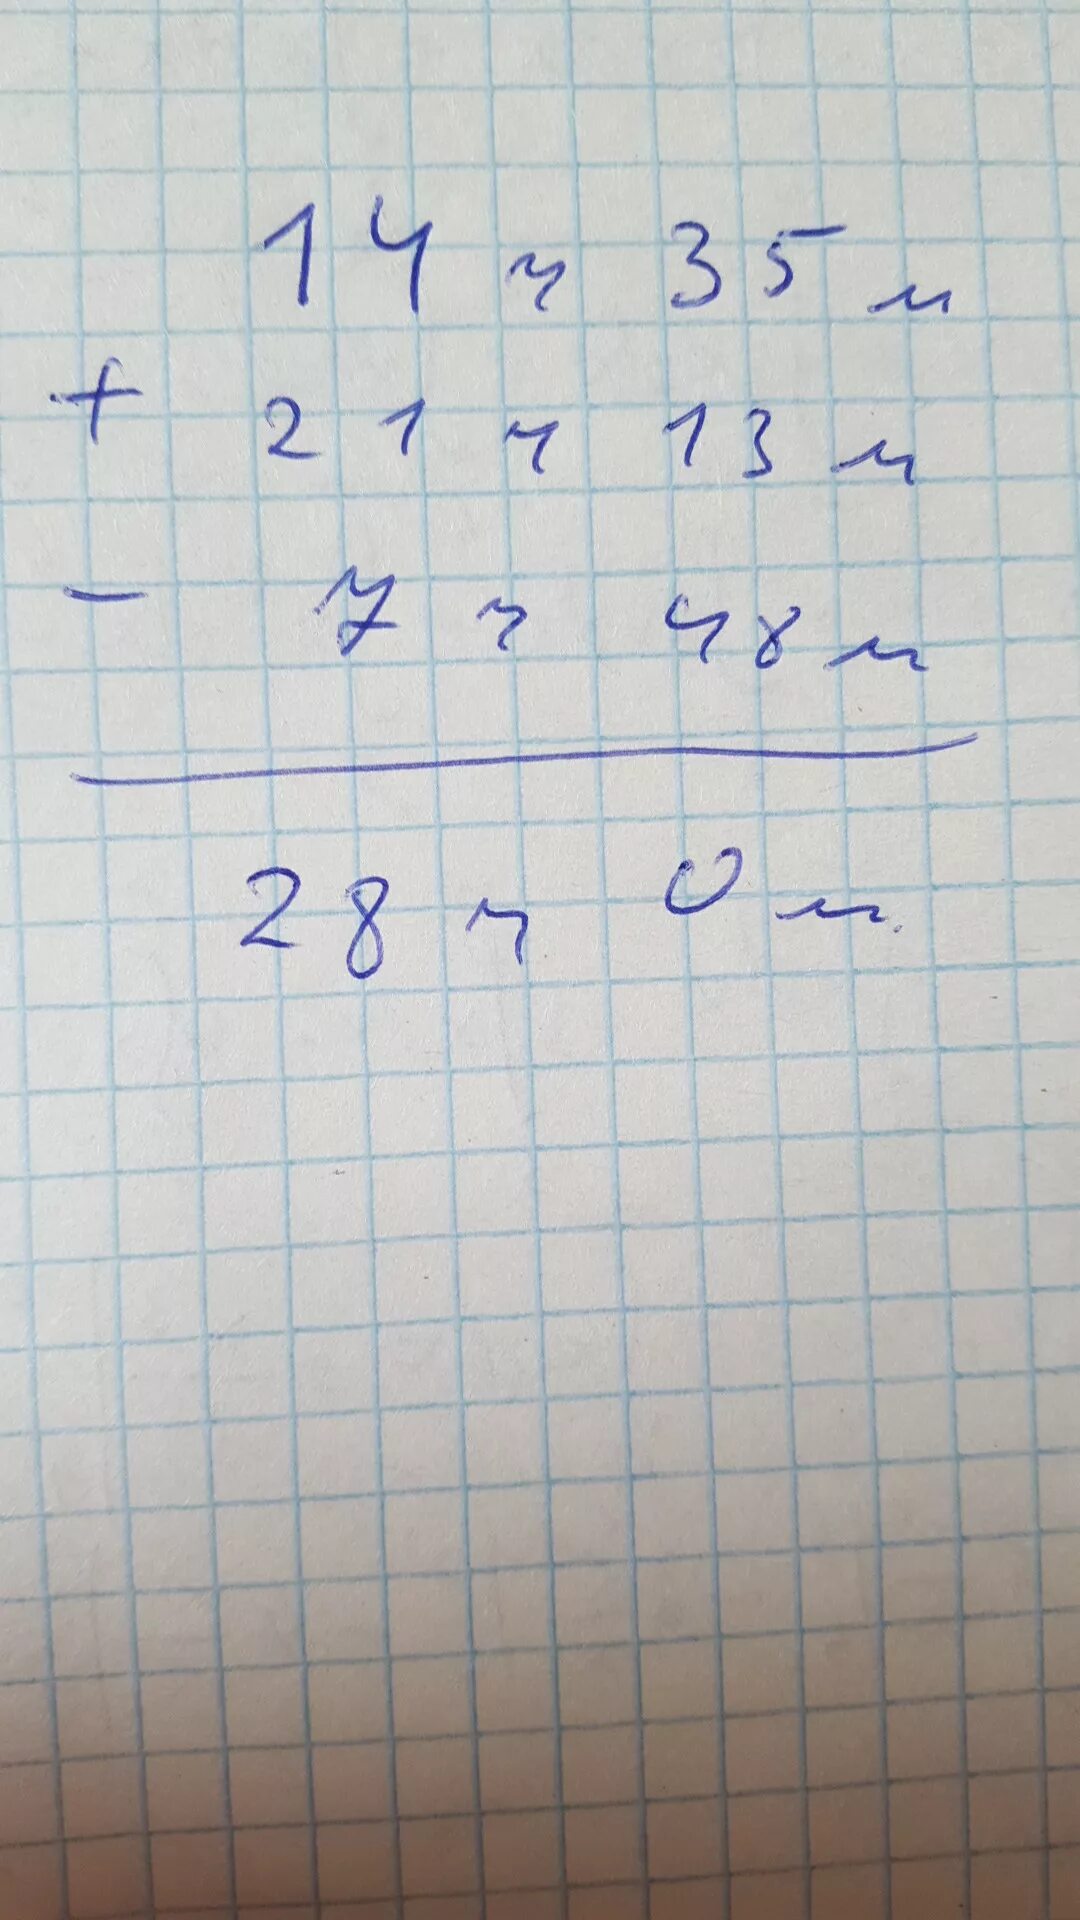 14 ч 35 м
+ 21 ч 13 м
- 7 ч 48 м
28 ч 0 м.